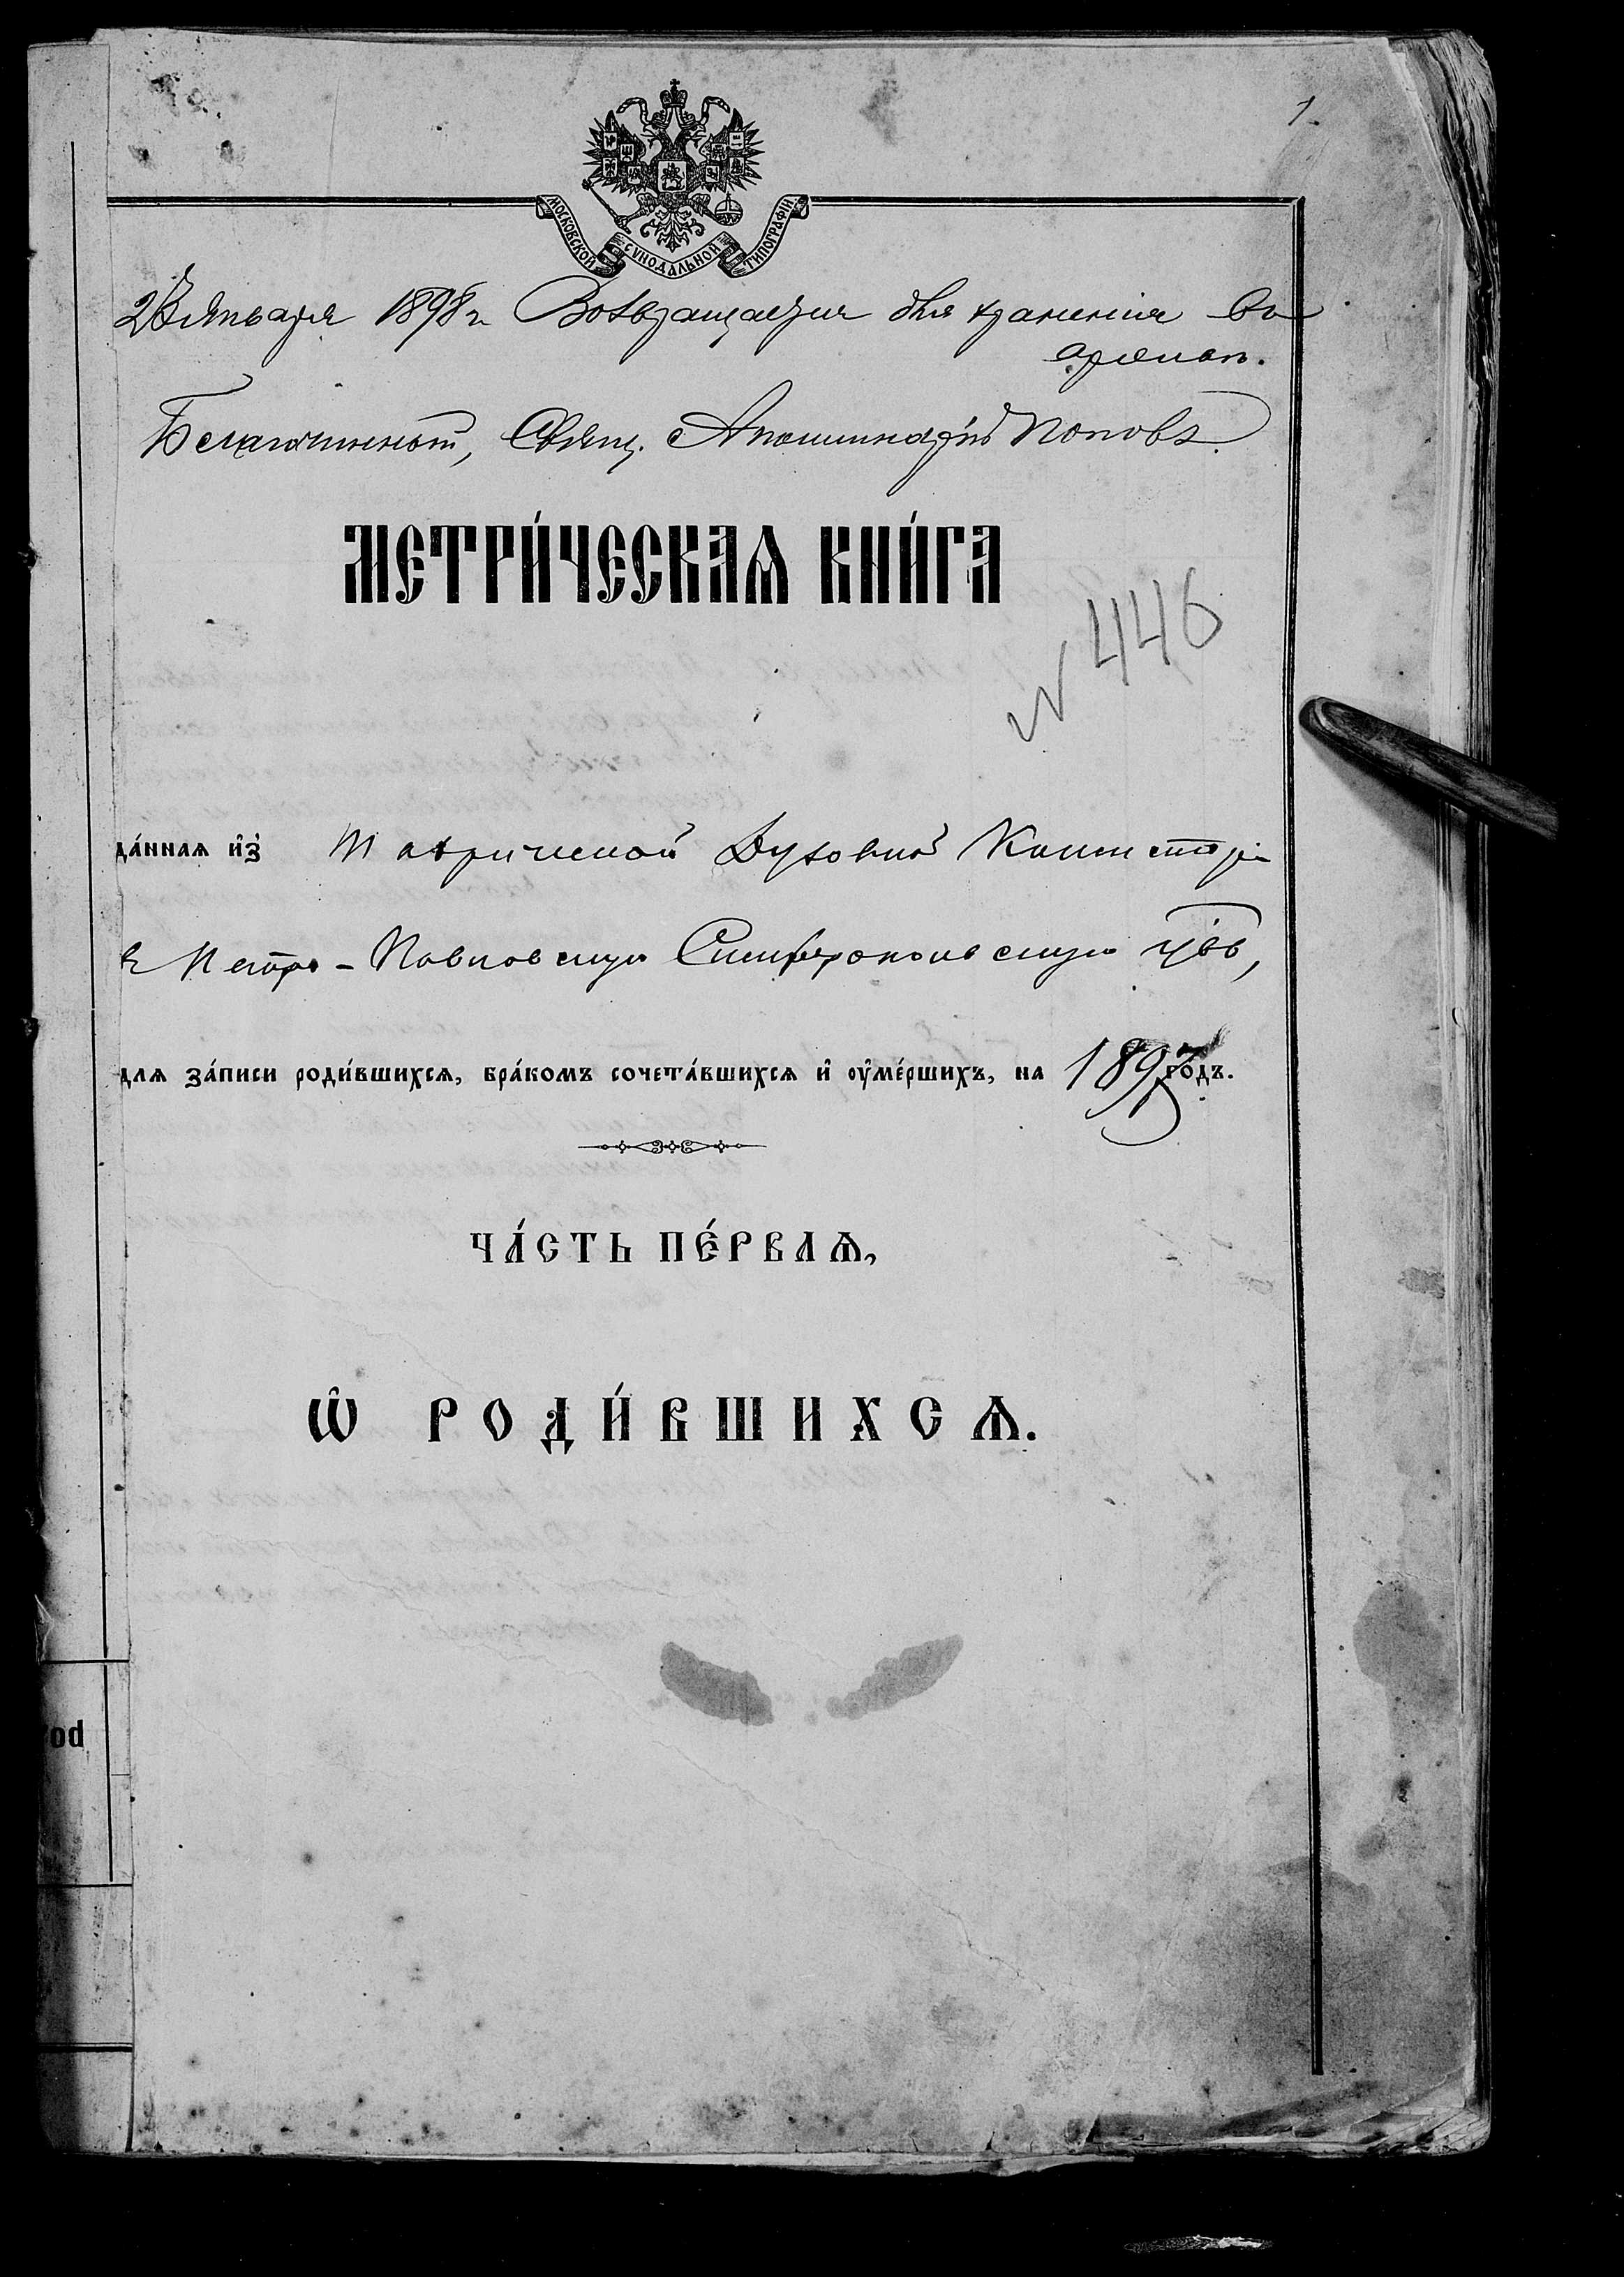 1.
МОСКОВСКОЙ СѴНОДАЛЬНОЙ ТИПОГРАФІИ
Января 1898 г. Возвращается для храненія въ
архивъ.
Благочинный, Свящ. Аполлинарій Поповъ
МЕТРИ́ЧЕСКАѦ КНИ́ГА
№ 446
да́ннаѧ и҆з̾ Таврической Духовной Консисторіи
въ Петро-Павловскую Симферопольскую цковь,
длѧ за́писи роди́вшихсѧ, бра́комъ сочета́вшихсѧ и҆ ᲂу҆ме́ршихъ, на 1897 годъ.
ЧА́СТЬ ПЕ́РВАѦ,
Ѡ҆ РОДИ́ВШИХСѦ.
od